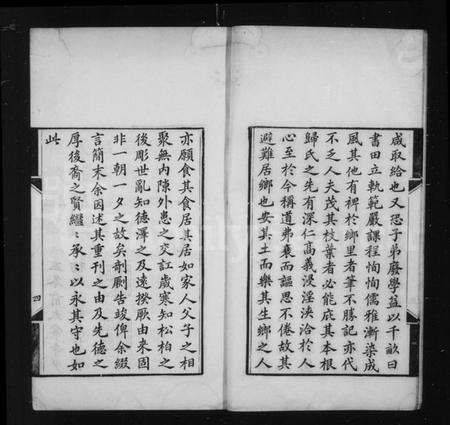 咸取給也又恐子弟廢學益以千畝曰
書田立軌範嚴課程恂恂儒雅漸染成
風其他有裨於鄉里者筆不勝記亦代
不乏人夫茂其枝葉者必能庇其本根
歸氏之先有深仁高義浸淫浹洽於人
心至於今稱道弗衰而謳思不倦故其
避難居鄉也安其土而樂其生鄉之人
亦願食其食居其居如家人父子之相
聚無內隙外患之交訌歲寒知松柏之
後彫世亂知德澤之及遠揆厥由來固
非一朝一夕之故矣剞劂告竣俾余綴
言簡末余因述其重刊之由及先德之
厚後裔之賢繼繼承承以永其守也如
此
四